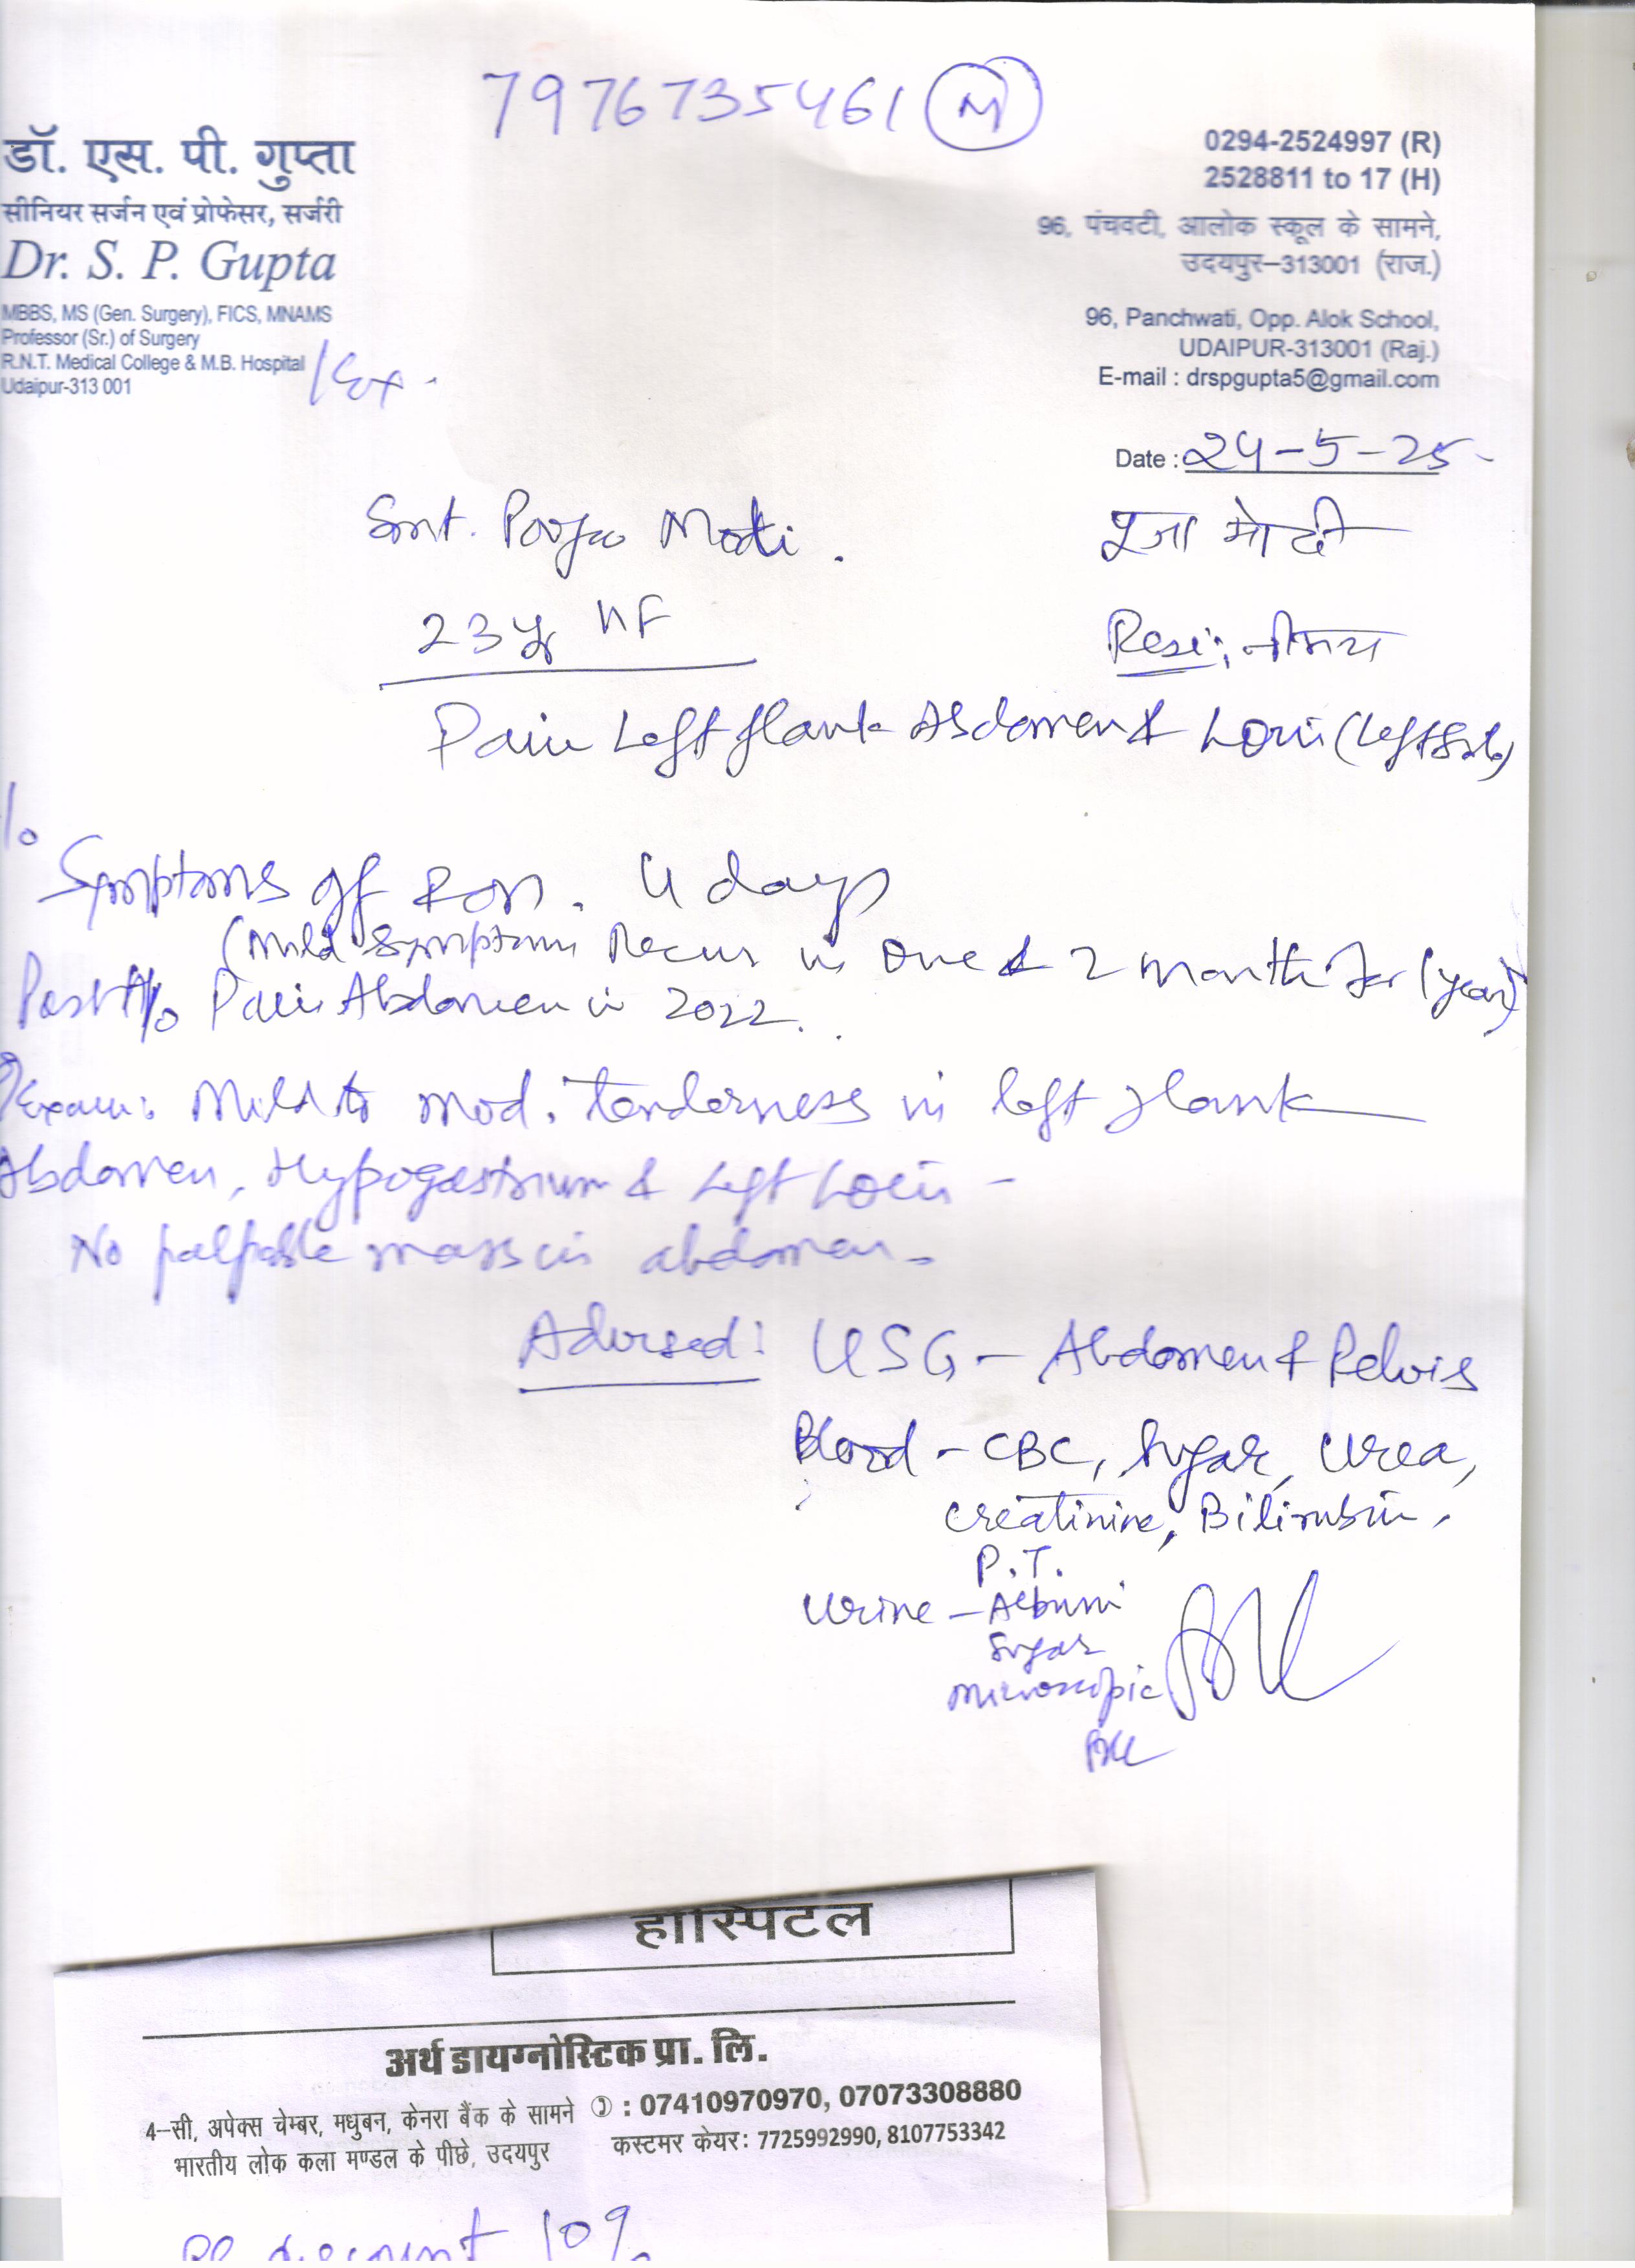 7976735461 (M)
डॉ. एस. पी. गुप्ता
सीनियर सर्जन एवं प्रोफेसर, सर्जरी
Dr. S. P. Gupta
MBBS, MS (Gen. Surgery), FICS, MNAMS
Professor (Sr.) of Surgery
R.N.T. Medical College & M.B. Hospital
Udaipur-313 001
/Ex.
0294-2524997 (R)
2528811 to 17 (H)
96, पंचवटी, आलोक स्कूल के सामने,
उदयपुर–313001 (राज.)
96, Panchwati, Opp. Alok School,
UDAIPUR-313001 (Raj.)
E-mail : drspgupta5@gmail.com
Date : 24-5-25
Smt. Pooja Modi. पूजा मोदी
23 yr Resi:
Pain Left flank Abdomen & Loin (Left side)
Symptoms of 4 days
(Mild Symptoms Recur in One & 2 month for 1 year)
Past H/o Pain Abdomen in 2022.
Exam: Mild to mod. Tenderness in left flank
Abdomen, Hypogastrium & Left Loin -
No palpable mass in abdomen.
Advised: USG - Abdomen & Pelvis
Blood - CBC, Sugar, Urea,
Creatinine, Bilirubin,
P.T.
Urine - Albumin
Sugar
Microscopic
हॉस्पिटल
अर्थ डायग्नोस्टिक प्रा. लि.
4–सी, अपेक्स चेम्बर, मधुबन, केनरा बैंक के सामने ✆ : 07410970970, 07073308880
भारतीय लोक कला मण्डल के पीछे, उदयपुर कस्टमर केयर: 7725992990, 8107753342
discount 10%